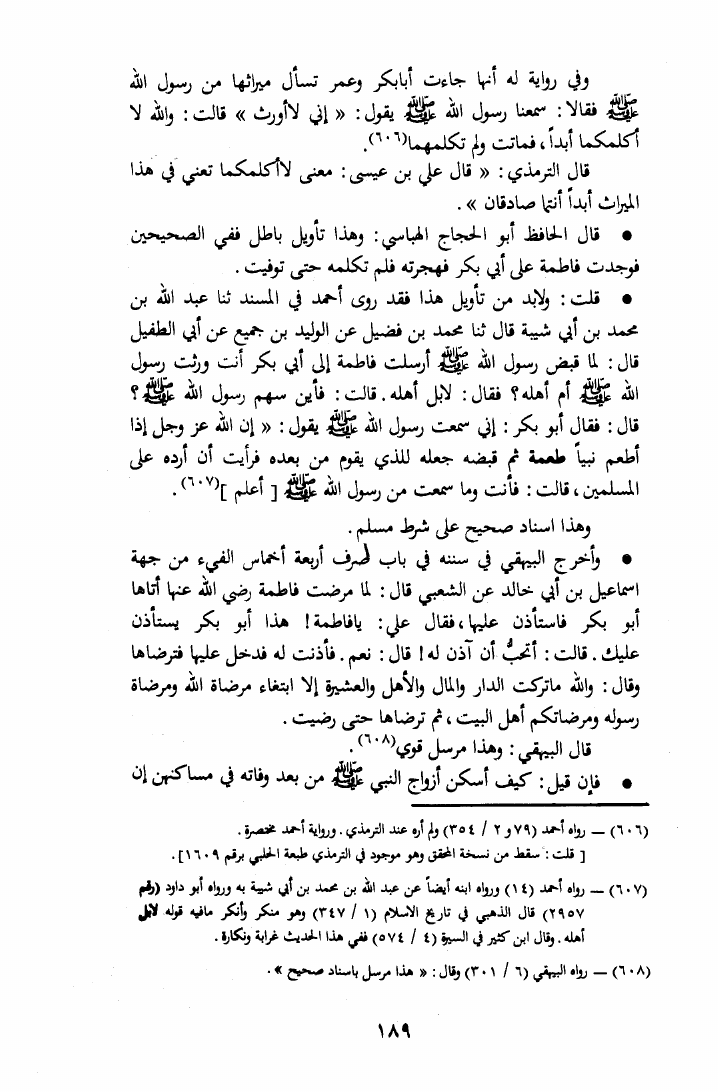 وفي رواية له أنها جاءت أبابكر وعمر تسأل ميراثها من رسول الله
ﷺ فقالا: سمعنا رسول الله ﷺ يقول: « إني لاأورث » قالت: والله لا
أكلمكما أبداً، فماتت ولم تكلمهما(٦٠٦).
قال الترمذي: « قال علي بن عيسى: معنى لاأكلمكما تعني في هذا
الميراث أبداً أنتما صادقان ».
• قال الحافظ أبو الحجاج الهباسي: وهذا تأويل باطل ففي الصحيحين
فوجدت فاطمة على أبي بكر فهجرته فلم تكلمه حتى توفيت.
• قلت: ولابد من تأويل هذا فقد روى أحمد في المسند ثنا عبد الله بن
محمد بن أبي شيبة قال ثنا محمد بن فضيل عن الوليد بن جميع عن أبي الطفيل
قال: لما قبض رسول الله ﷺ أرسلت فاطمة إلى أبي بكر أنت ورثت رسول
الله ﷺ أم أهله؟ فقال: لابل أهله. قالت: فأين سهم رسول الله ﷺ؟
قال: فقال أبو بكر: إني سمعت رسول الله ﷺ يقول: « إن الله عز وجل إذا
أطعم نبياً طعمة ثم قبضه جعله للذي يقوم من بعده فرأيت أن أرده على
المسلمين، قالت: فأنت وما سمعت من رسول الله ﷺ [ أعلم ](٦٠٧).
وهذا اسناد صحيح على شرط مسلم.
• وأخرج البيهقي في سننه في باب صرف أربعة أخماس الفيء من جهة
اسماعيل بن أبي خالد عن الشعبي قال: لما مرضت فاطمة رضي الله عنها أتاها
أبو بكر فاستأذن عليها، فقال علي: يافاطمة! هذا أبو بكر يستأذن
عليك. قالت: أتحبُّ أن آذن له! قال: نعم. فأذنت له فدخل عليها فترضاها
وقال: والله ماتركت الدار والمال والأهل والعشيرة إلا ابتغاء مرضاة الله ومرضاة
رسوله ومرضاتكم أهل البيت، ثم ترضاها حتى رضيت.
قال البيهقي: وهذا مرسل قوي(٦٠٨).
• فإن قيل: كيف أسكن أزواج النبي ﷺ من بعد وفاته في مساكنهن إن
(٦٠٦) – رواه أحمد (٧٩ و ٢ / ٣٥٤) ولم أره عند الترمذي. ورواية أحمد مختصرة.
[ قلت: سقط من نسخة المحقق وهو موجود في الترمذي طبعة الحلبي برقم ١٦٠٩].
(٦٠٧) – رواه أحمد (١٤) ورواه ابنه أيضاً عن عبد الله بن محمد بن أبي شيبة به ورواه أبو داود (رقم
٢٩٥٧) قال الذهبي في تاريخ الاسلام (١ / ٣٤٧) وهو منكر وأنكر مافيه قوله لابل
أهله. وقال ابن كثير في السيرة (٤ / ٥٧٤) ففي هذا الحديث غرابة ونكارة.
(٦٠٨) – رواه البيهقي (٦ / ٣٠١) وقال: « هذا مرسل باسناد صحيح ».
١٨٩